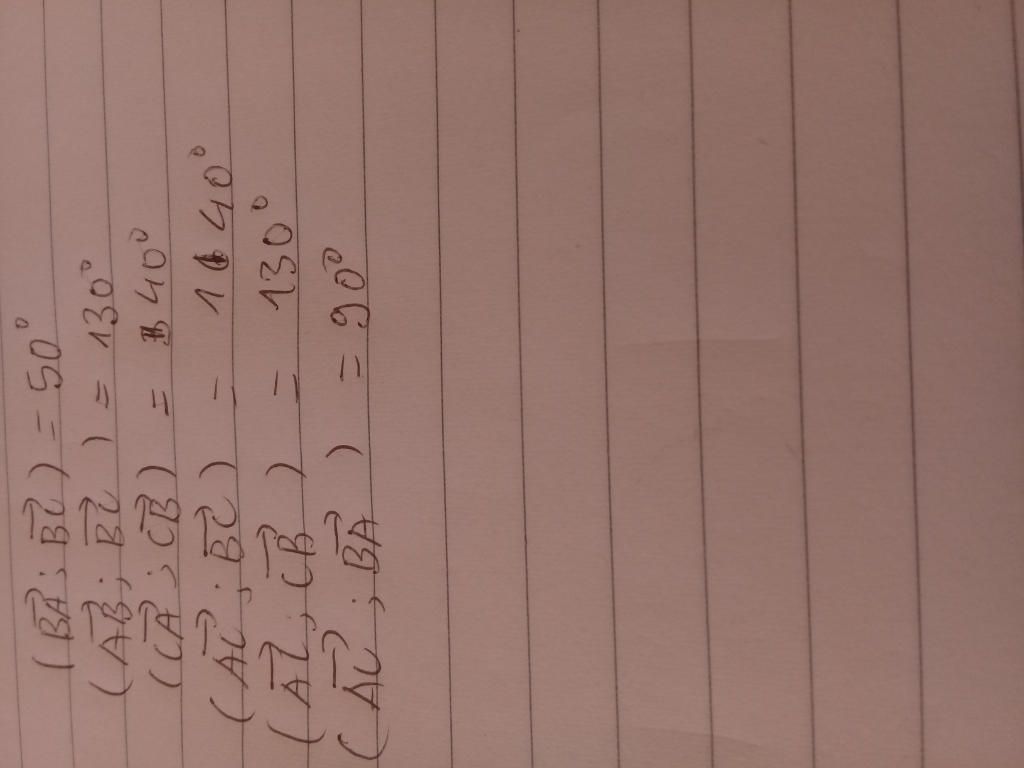 (B⃗A⃗; B⃗C⃗) = 50°
(A⃗B⃗; B⃗C⃗) = 130°
(C⃗A⃗; C⃗B⃗) = 40°
(A⃗C⃗; B⃗C⃗) = 140°
(A⃗C⃗; C⃗B⃗) = 130°
(A⃗C⃗; B⃗A⃗) = 90°